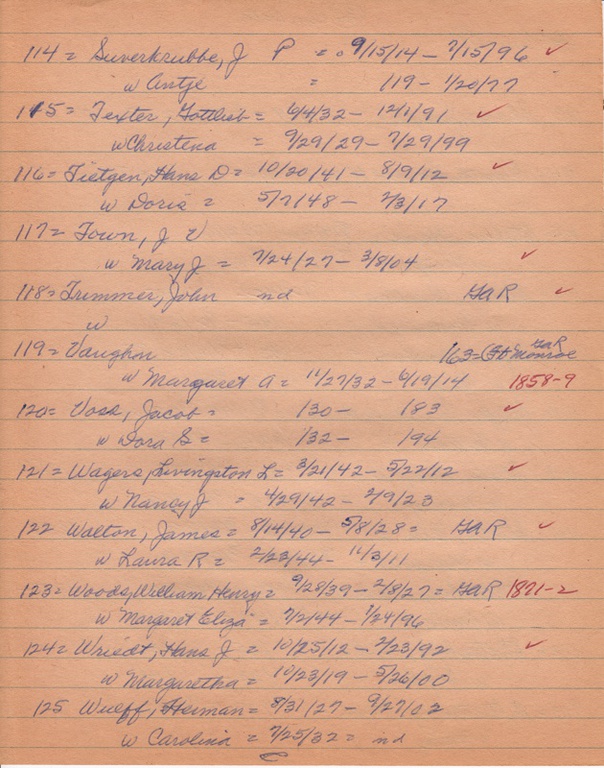 114 = Suverkrubbe, J P = 9/15/14 - 2/15/96 ✓
w Antje = 119 - 1/20/77
115 = Texter, Gottlieb = 6/4/32 - 12/1/91 ✓
w Christena = 9/29/29 - 7/29/99
116 = Tietgen, Hans D = 10/20/41 - 8/9/12 ✓
w Doris = 5/7/48 - 2/3/17
117 = Town, J V
w Mary J = 7/24/27 - 3/8/04 ✓
118 = Trimmer, John nd GaR ✓
w
119 = Vaughon 163 = (Ft Monroe GaR
w Margaret A = 11/27/32 - 6/19/14 1858-9
120 = Voss, Jacob = 130 - 183 ✓
w Dora S = 132 - 194
121 = Wagers, Livingston L = 3/21/42 - 5/22/12 ✓
w Nancy J = 4/29/42 - 2/9/23
122 Walton, James = 8/14/40 - 5/8/28 = GaR ✓
w Laura R = 2/23/44 - 11/3/11
123 = Woods, William Henry = 9/28/39 - 2/8/27 = GaR 1871-2
w Margaret Eliza = 7/2/44 - 1/24/96
124 = Wriedt, Hans J = 10/25/12 - 2/23/92 ✓
w Margaretha = 10/23/19 - 5/26/00
125 Wulff, Herman = 8/31/27 - 9/27/02
w Carolina = 7/25/32 = nd